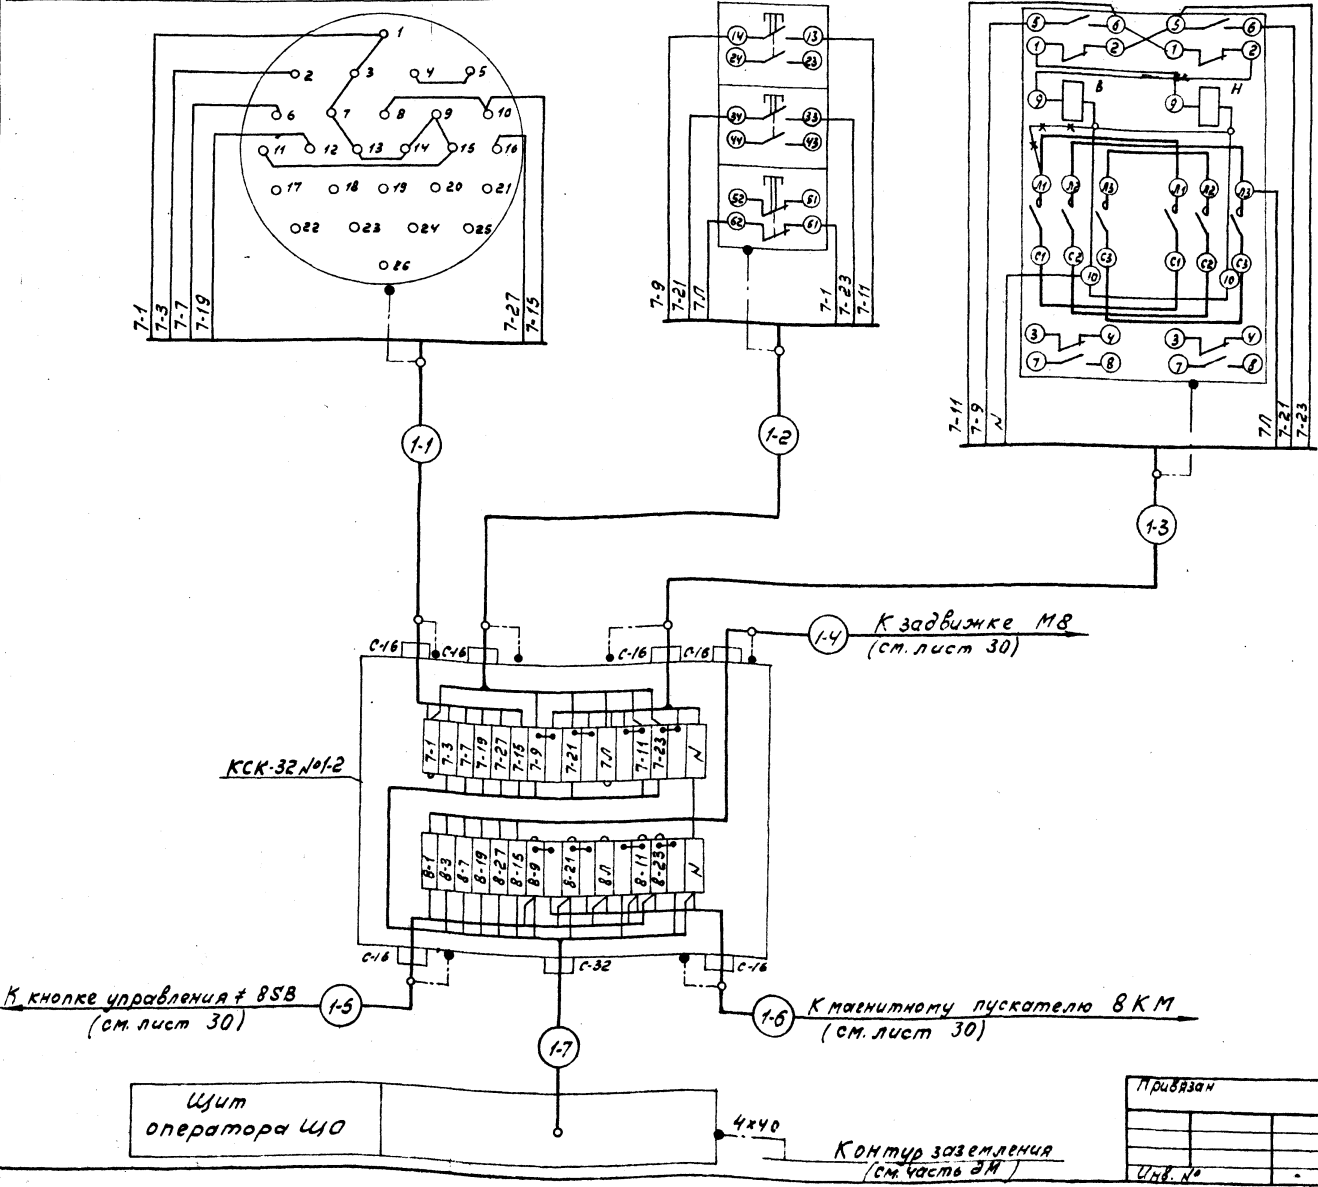 1
2 3 4 5
6 7 8 9 10
11 12 13 14 15 16
17 18 19 20 21
22 23 24 25
26
7-1 7-3 7-7 7-19 7-27 7-15
14 13
24 23
34 33
44 43
52 51
62 61
7-9 7-21 7Л 7-1 7-23 7-11
5 6 5 6
1 2 1 2
В Н
9 9
Л1 Л2 Л3 Л1 Л2 Л3
С1 С2 С3 С1 С2 С3
10 10
3 4 3 4
7 8 7 8
7-11 7-9 N 7Л 7-21 7-23
1-1
1-2
1-3
1-4
К задвижке М8
(см. лист 30)
С-16 С-16 С-16 С-16
7-1 7-3 7-7 7-19 7-27 7-15 7-9 7-21 7Л 7-11 7-23 N
КСК-32 №1-2
8-1 8-3 8-7 8-19 8-27 8-15 8-9 8-21 8Л 8-11 8-23 N
С-16 С-32 С-16
К кнопке управления 8SB
(см. лист 30)
1-5
1-6
К магнитному пускателю 8КМ
(см. лист 30)
1-7
Щит
оператора ЩО
4х40
Контур заземления
(см. часть ЭМ)
Привязан
Инв. №